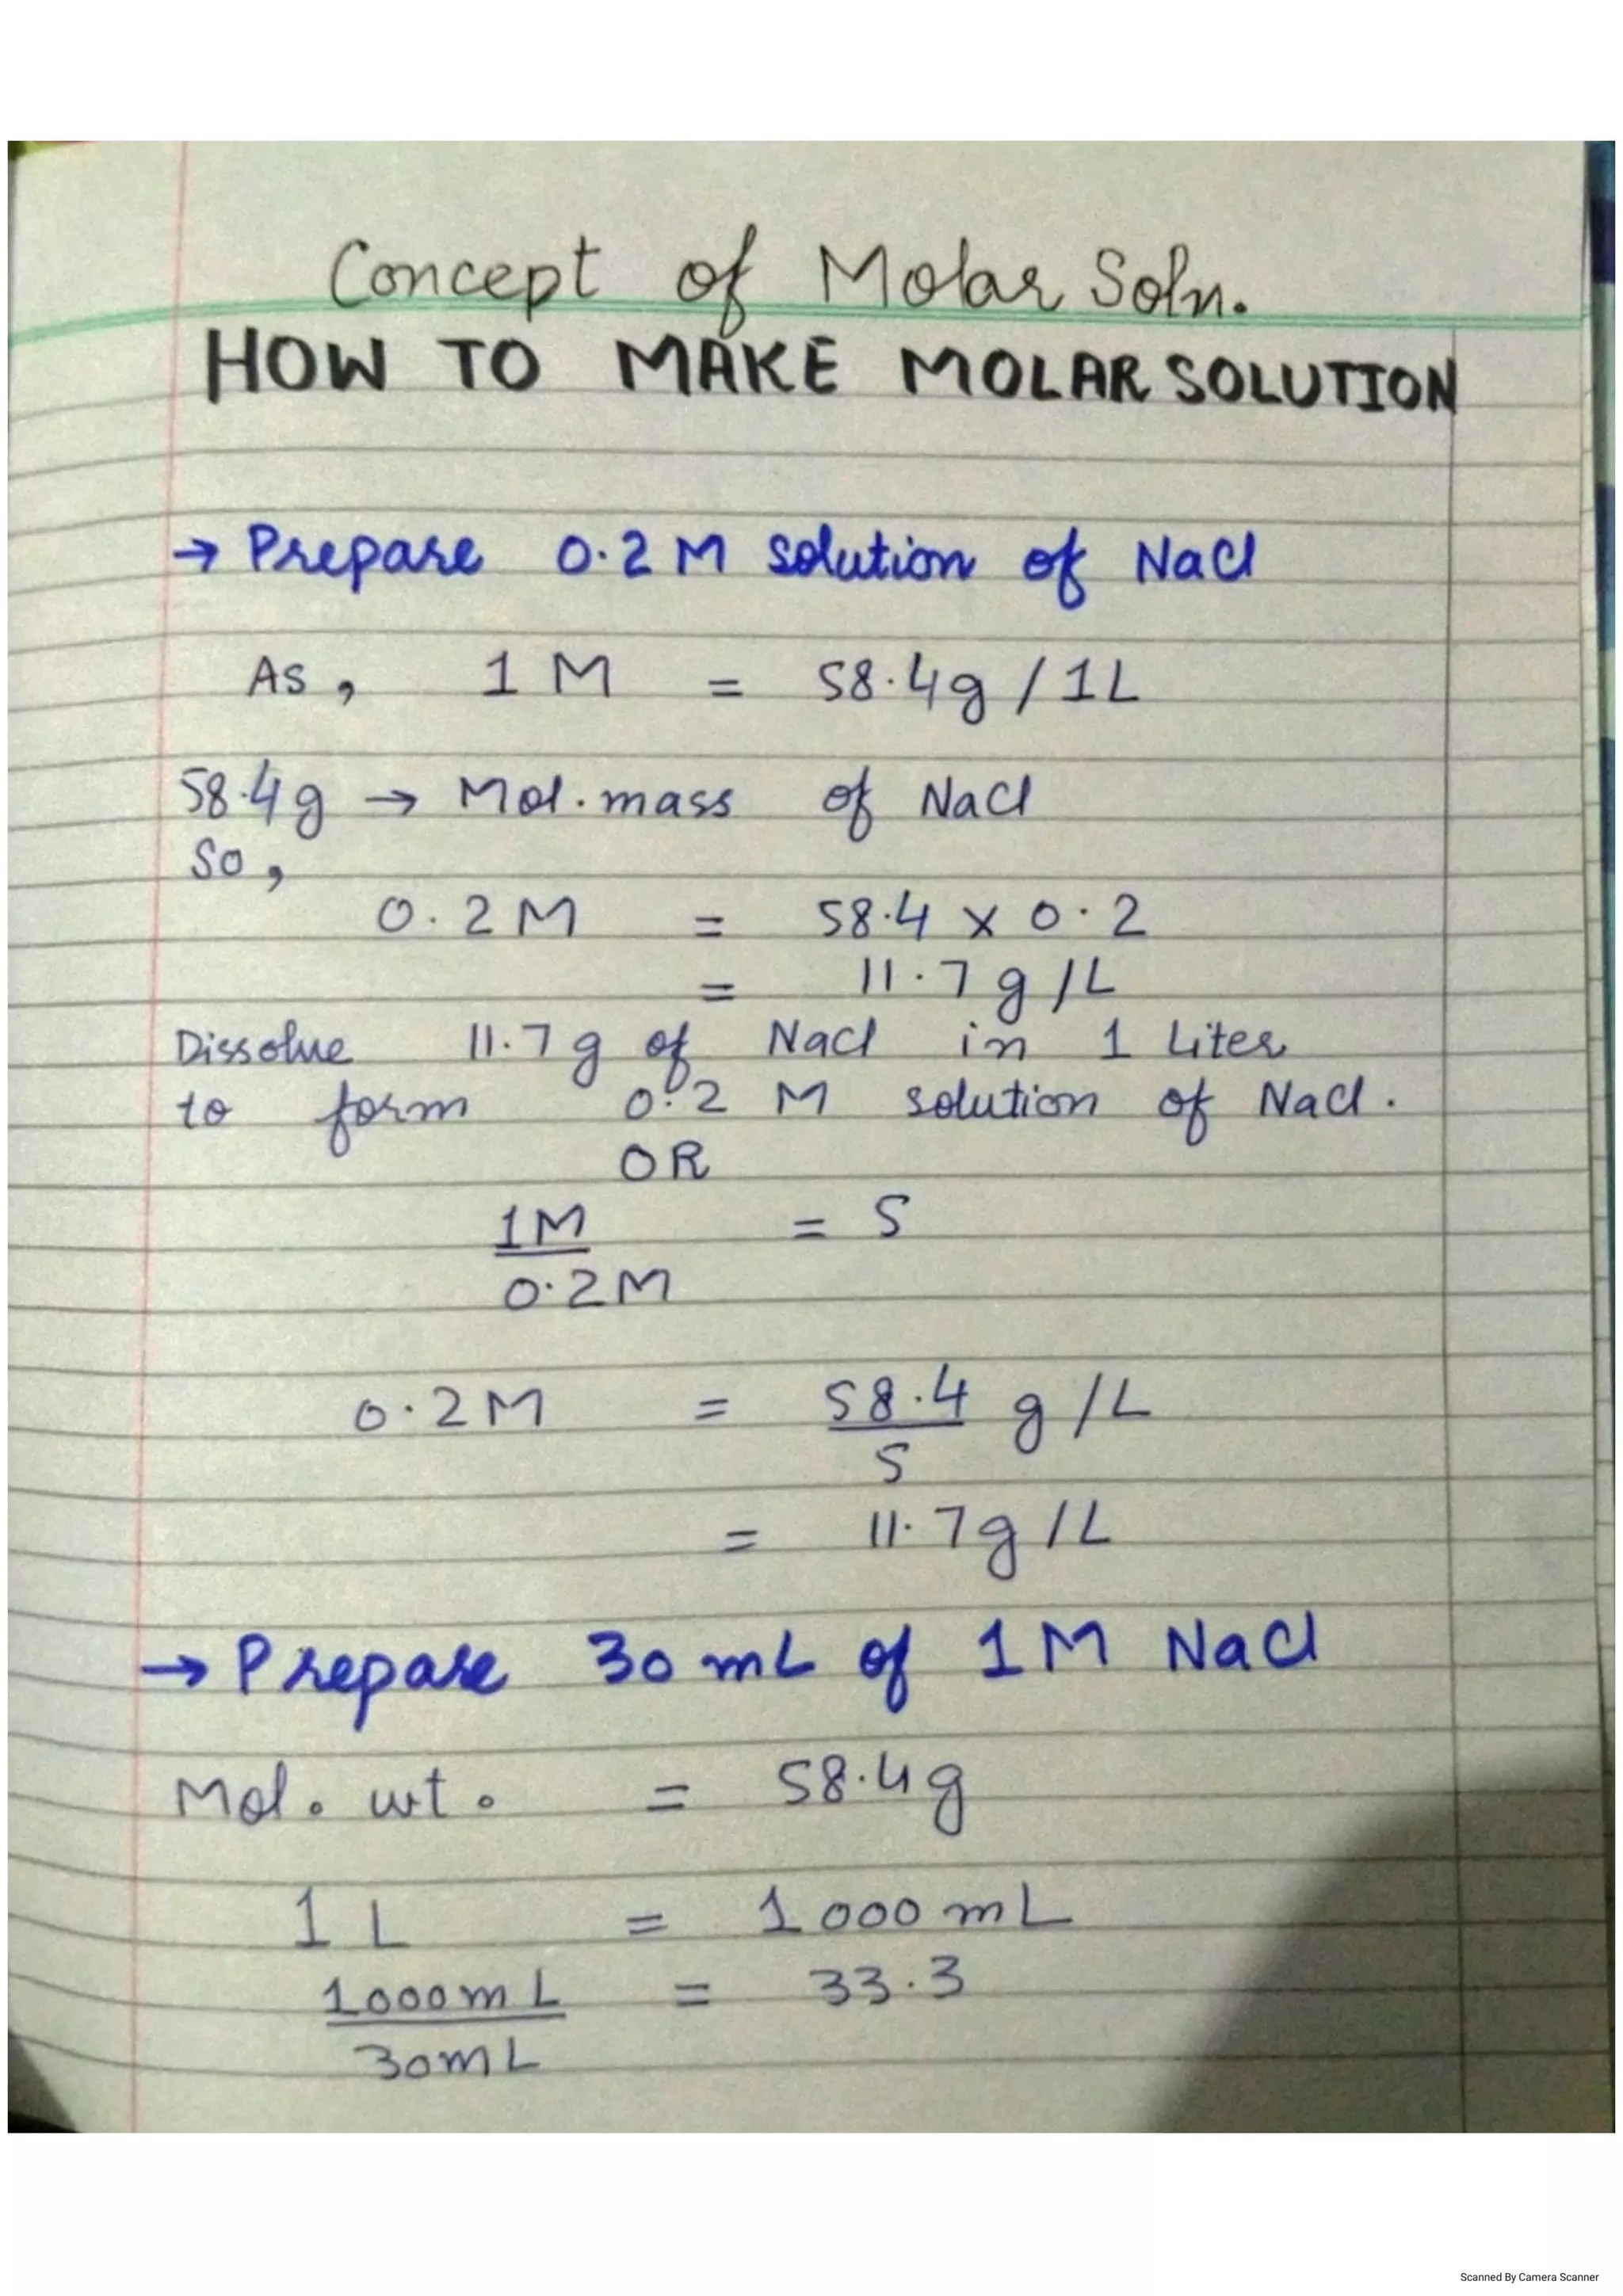 Concept of Molar Soln.
HOW TO MAKE MOLAR SOLUTION
→ Prepare 0.2 M solution of NaCl
As, 1 M = 58.4g / 1L
58.4g → Mol. mass of NaCl
So,
0.2M = 58.4 x 0.2
= 11.7 g/L
Dissolve 11.7 g of NaCl in 1 Liter
to form 0.2 M solution of NaCl.
OR
1M = 5
0.2M
0.2M = 58.4 g/L
5
= 11.7g/L
→ Prepare 30 mL of 1M NaCl
Mol. wt. = 58.4g
1 L = 1000 mL
1000mL = 33.3
30mL
Scanned By Camera Scanner